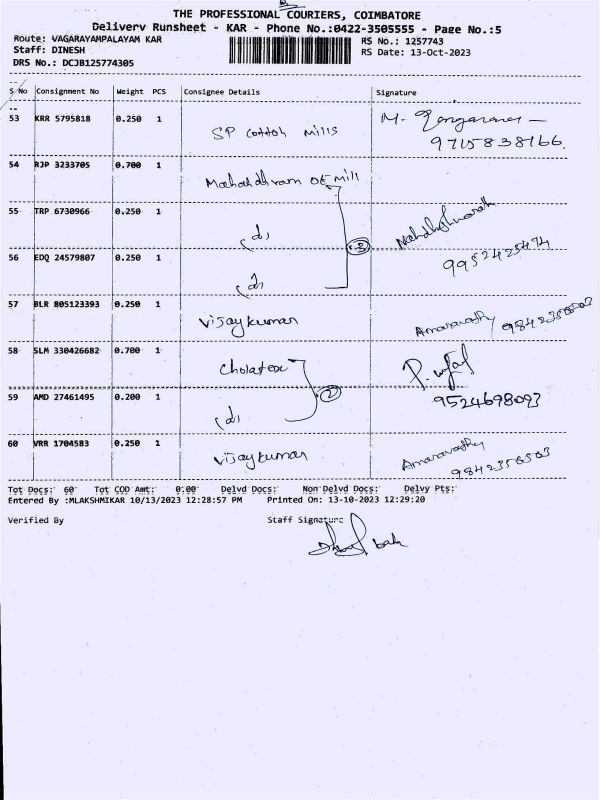 THE PROFESSIONAL COURIERS, COIMBATORE
Delivery Runsheet - KAR - Phone No.:0422-3505555 - Page No.:5
Route: VAGARAYAMPALAYAM KAR RS No.: 1257743
Staff: DINESH RS Date: 13-Oct-2023
DRS No.: DCJB125774305
S No Consignment No Weight PCS Consignee Details Signature
53 KRR 5795818 0.250 1 SP Cotton mills M.
9715838166.
54 RJP 3233705 0.700 1 Mahadhram OE Mill
55 TRP 6730966 0.250 1 (d)
3
56 EDQ 24579807 0.250 1 (d) 9952425474
57 BLR 805123393 0.250 1 Vijaykumar Amaravathy
58 SLM 330426682 0.700 1 Cholatex P.
59 AMD 27461495 0.200 1 (d) 2 9524698093
60 VRR 1704583 0.250 1 Vijaykumar Amaravathy
9842356503
Tot Docs: 60 Tot COD Amt: 0.00 Delvd Docs: Non Delvd Docs: Delvy Pts:
Entered By :MLAKSHMIKAR 10/13/2023 12:28:57 PM Printed On: 13-10-2023 12:29:20
Verified By Staff Signature